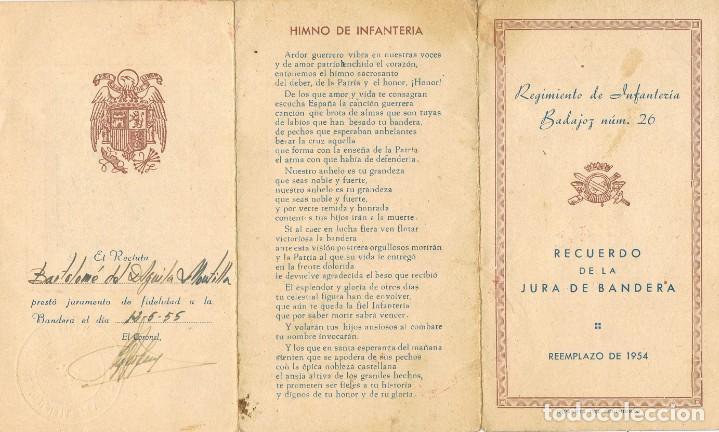 El Recluta
Bartolomé del Aguila Montilla
prestó juramento de fidelidad a la
Bandera el día 12-6-55
El Coronel,
HIMNO DE INFANTERIA
Ardor guerrero vibra en nuestras voces
y de amor patrio henchido el corazón,
entonemos el himno sacrosanto
del deber, de la Patria y el honor, ¡Honor!
De los que amor y vida te consagran
escucha España la canción guerrera
canción que brota de almas que son tuyas
de labios que han besado tu bandera,
de pechos que esperaban anhelantes
besar la cruz aquella
que forma con la enseña de la Patria
el arma con que había de defenderla.
Nuestro anhelo es tu grandeza
que seas noble y fuerte,
nuestro anhelo es tu grandeza
que seas noble y fuerte,
y por verte temida y honrada
contentos tus hijos irán a la muerte.
Si al caer en lucha fiera ven flotar
victoriosa la bandera
ante esta visión postrera orgullosos morirán
y la Patria al que su vida le entregó
en la frente dolorida
le devuelve agradecida el beso que recibió
El esplendor y gloria de otros días
tu celestial figura han de envolver,
que aún te queda la fiel Infantería
que por saber morir sabrá vencer.
Y volarán tus hijos ansiosos al combate
tu nombre invocarán.
Y los que en santa esperanza del mañana
sienten que se apodera de sus pechos
con la épica nobleza castellana
el ansia altiva de los grandes hechos,
te prometen ser fieles a tu historia
y dignos de tu honor y de tu gloria.
Regimiento de Infantería
Badajoz núm. 26
RECUERDO
DE LA
JURA DE BANDERA
REEMPLAZO DE 1954
todocoleccion.net